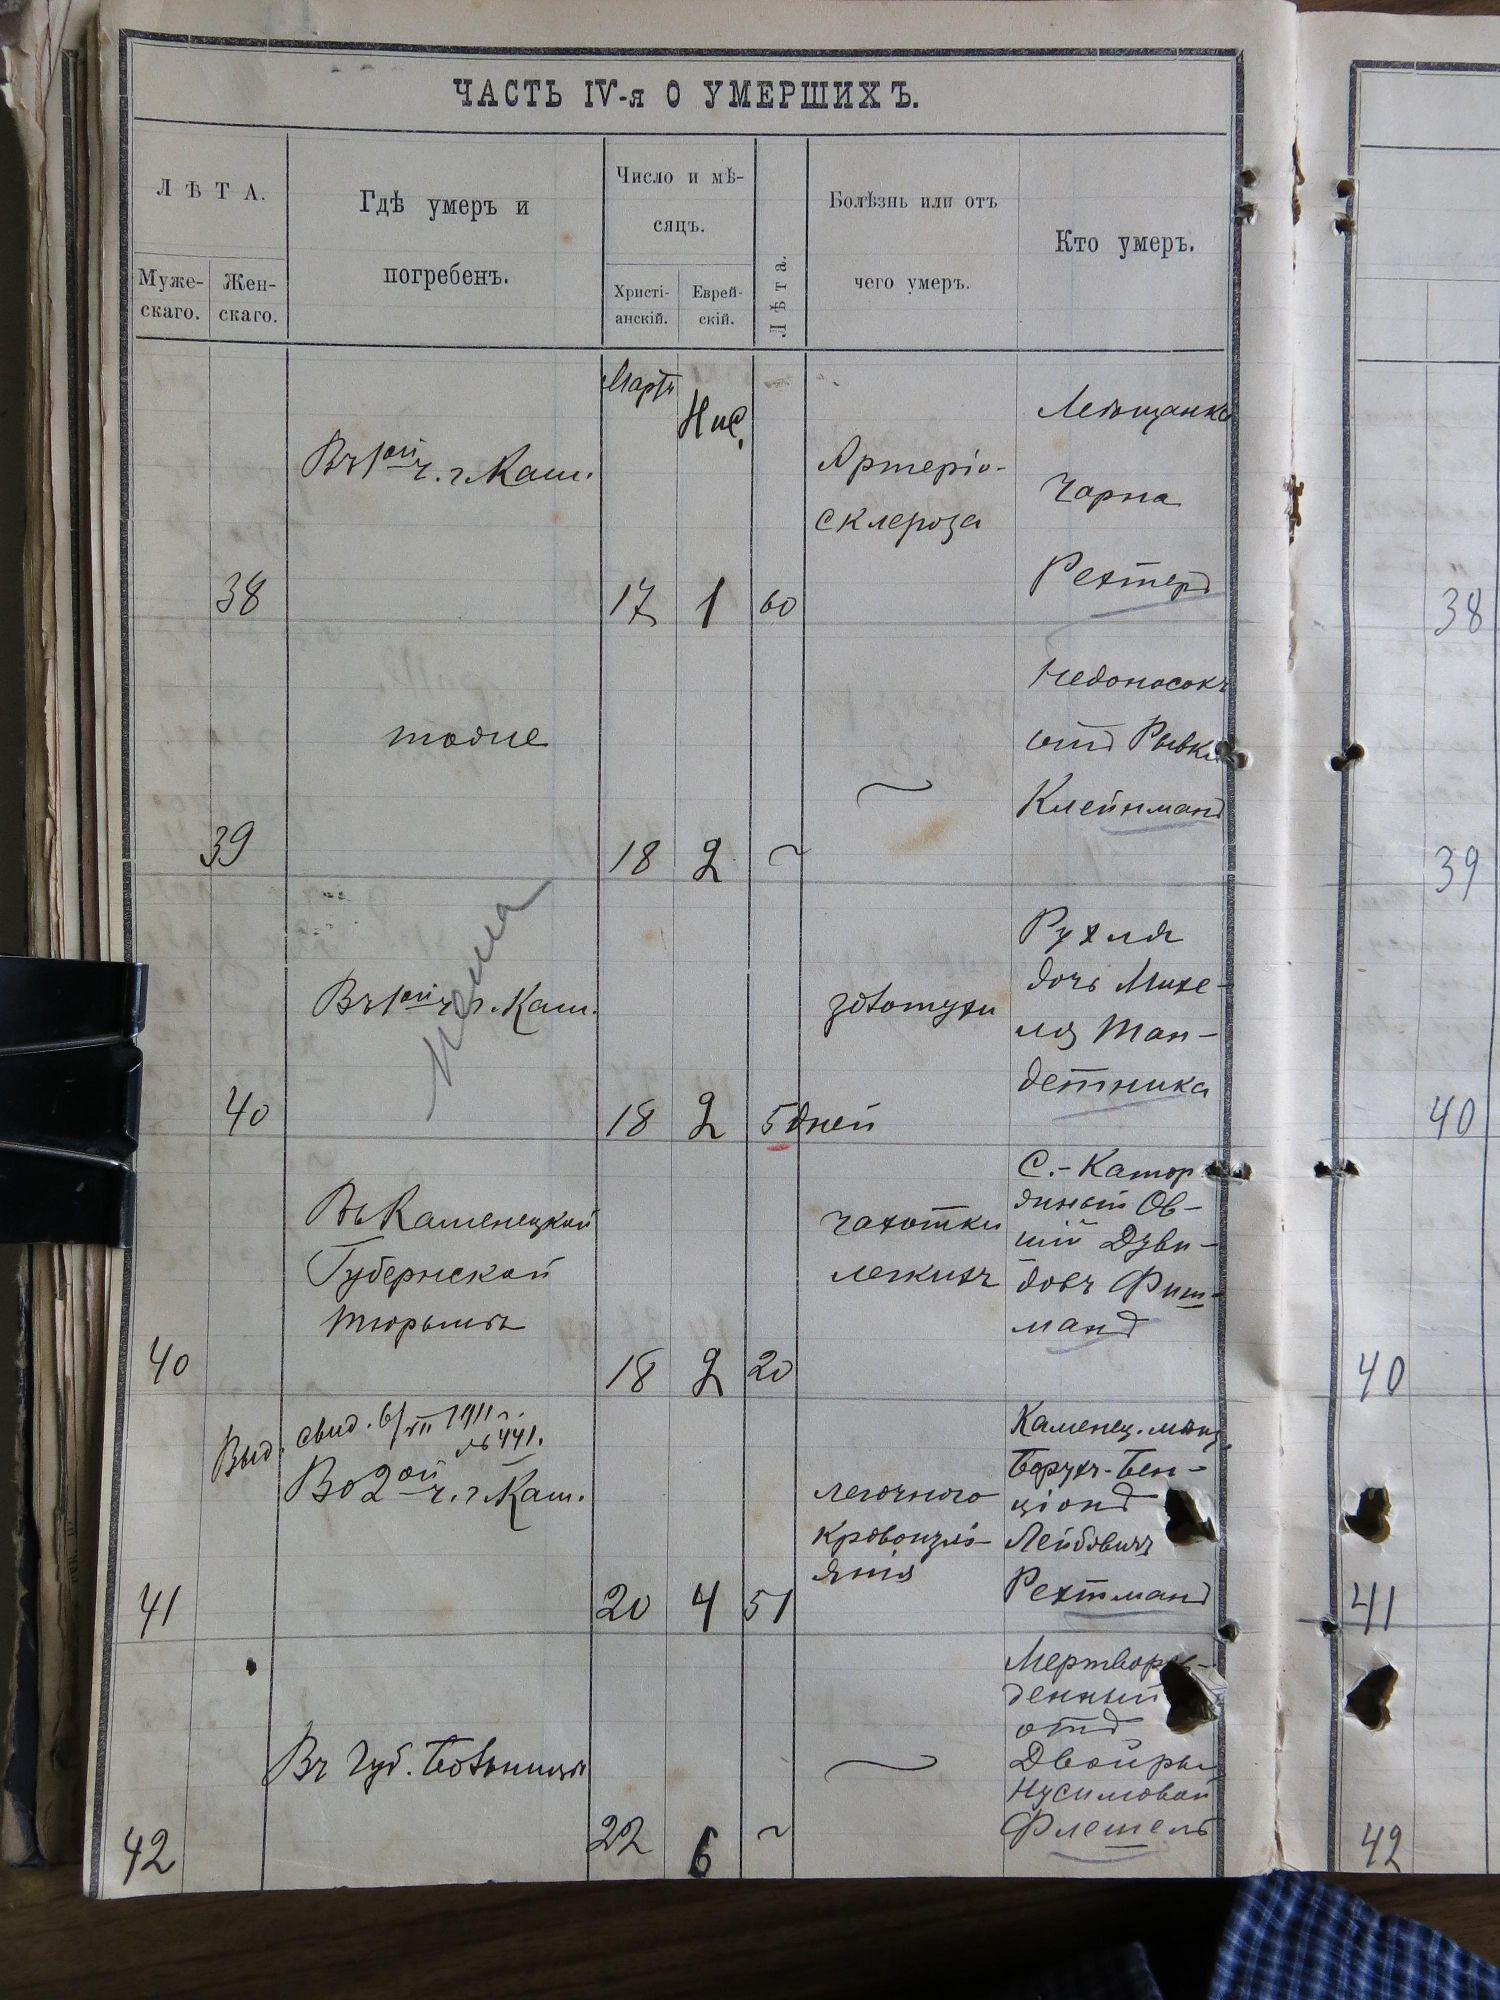 ЧАСТЬ IV-я О УМЕРШИХЪ.
ЛѢТА.
Муже-
скаго.
Жен-
скаго.
Гдѣ умеръ и
погребенъ.
Число и мѣ-
сяцъ.
Христі-
анскій.
Еврей-
скій.
Лѣта.
Болѣзнь или отъ
чего умеръ.
Кто умеръ.
38
Въ 1ой ч. г. Кам.
Мартъ
17
Нис.
1
60
Артеріо-
склероза
Чарна
Рехтеръ
38
39
тоже
18
2
~
~
Недоносокъ
отъ Рывки
Клейнманъ
39
40
Въ 1ой ч. г. Кам.
18
2
5 дней
золотухи
Рухля
дочь Михе-
ля Тан-
детника
40
40
Въ Каменецкой
Губернской
тюрьмѣ
18
2
20
чахотки
легкихъ
С.-Катор
жный Ов-
шій Дуви-
довъ Фиш-
манъ
40
Выд. свид. 6/VII 1911 г.
№ 441.
41
Во 2ой ч. г. Кам.
20
4
51
легочного
кровоизлі-
янія
Каменец. мѣщ.
Борухъ-Бен-
ціонъ
Лейбовичъ
Рехтманъ
41
42
Въ Губ. Больницѣ
22
6
~
~
Мертворо-
денный
отъ
Двойры
Нусимовой
Флешель
42